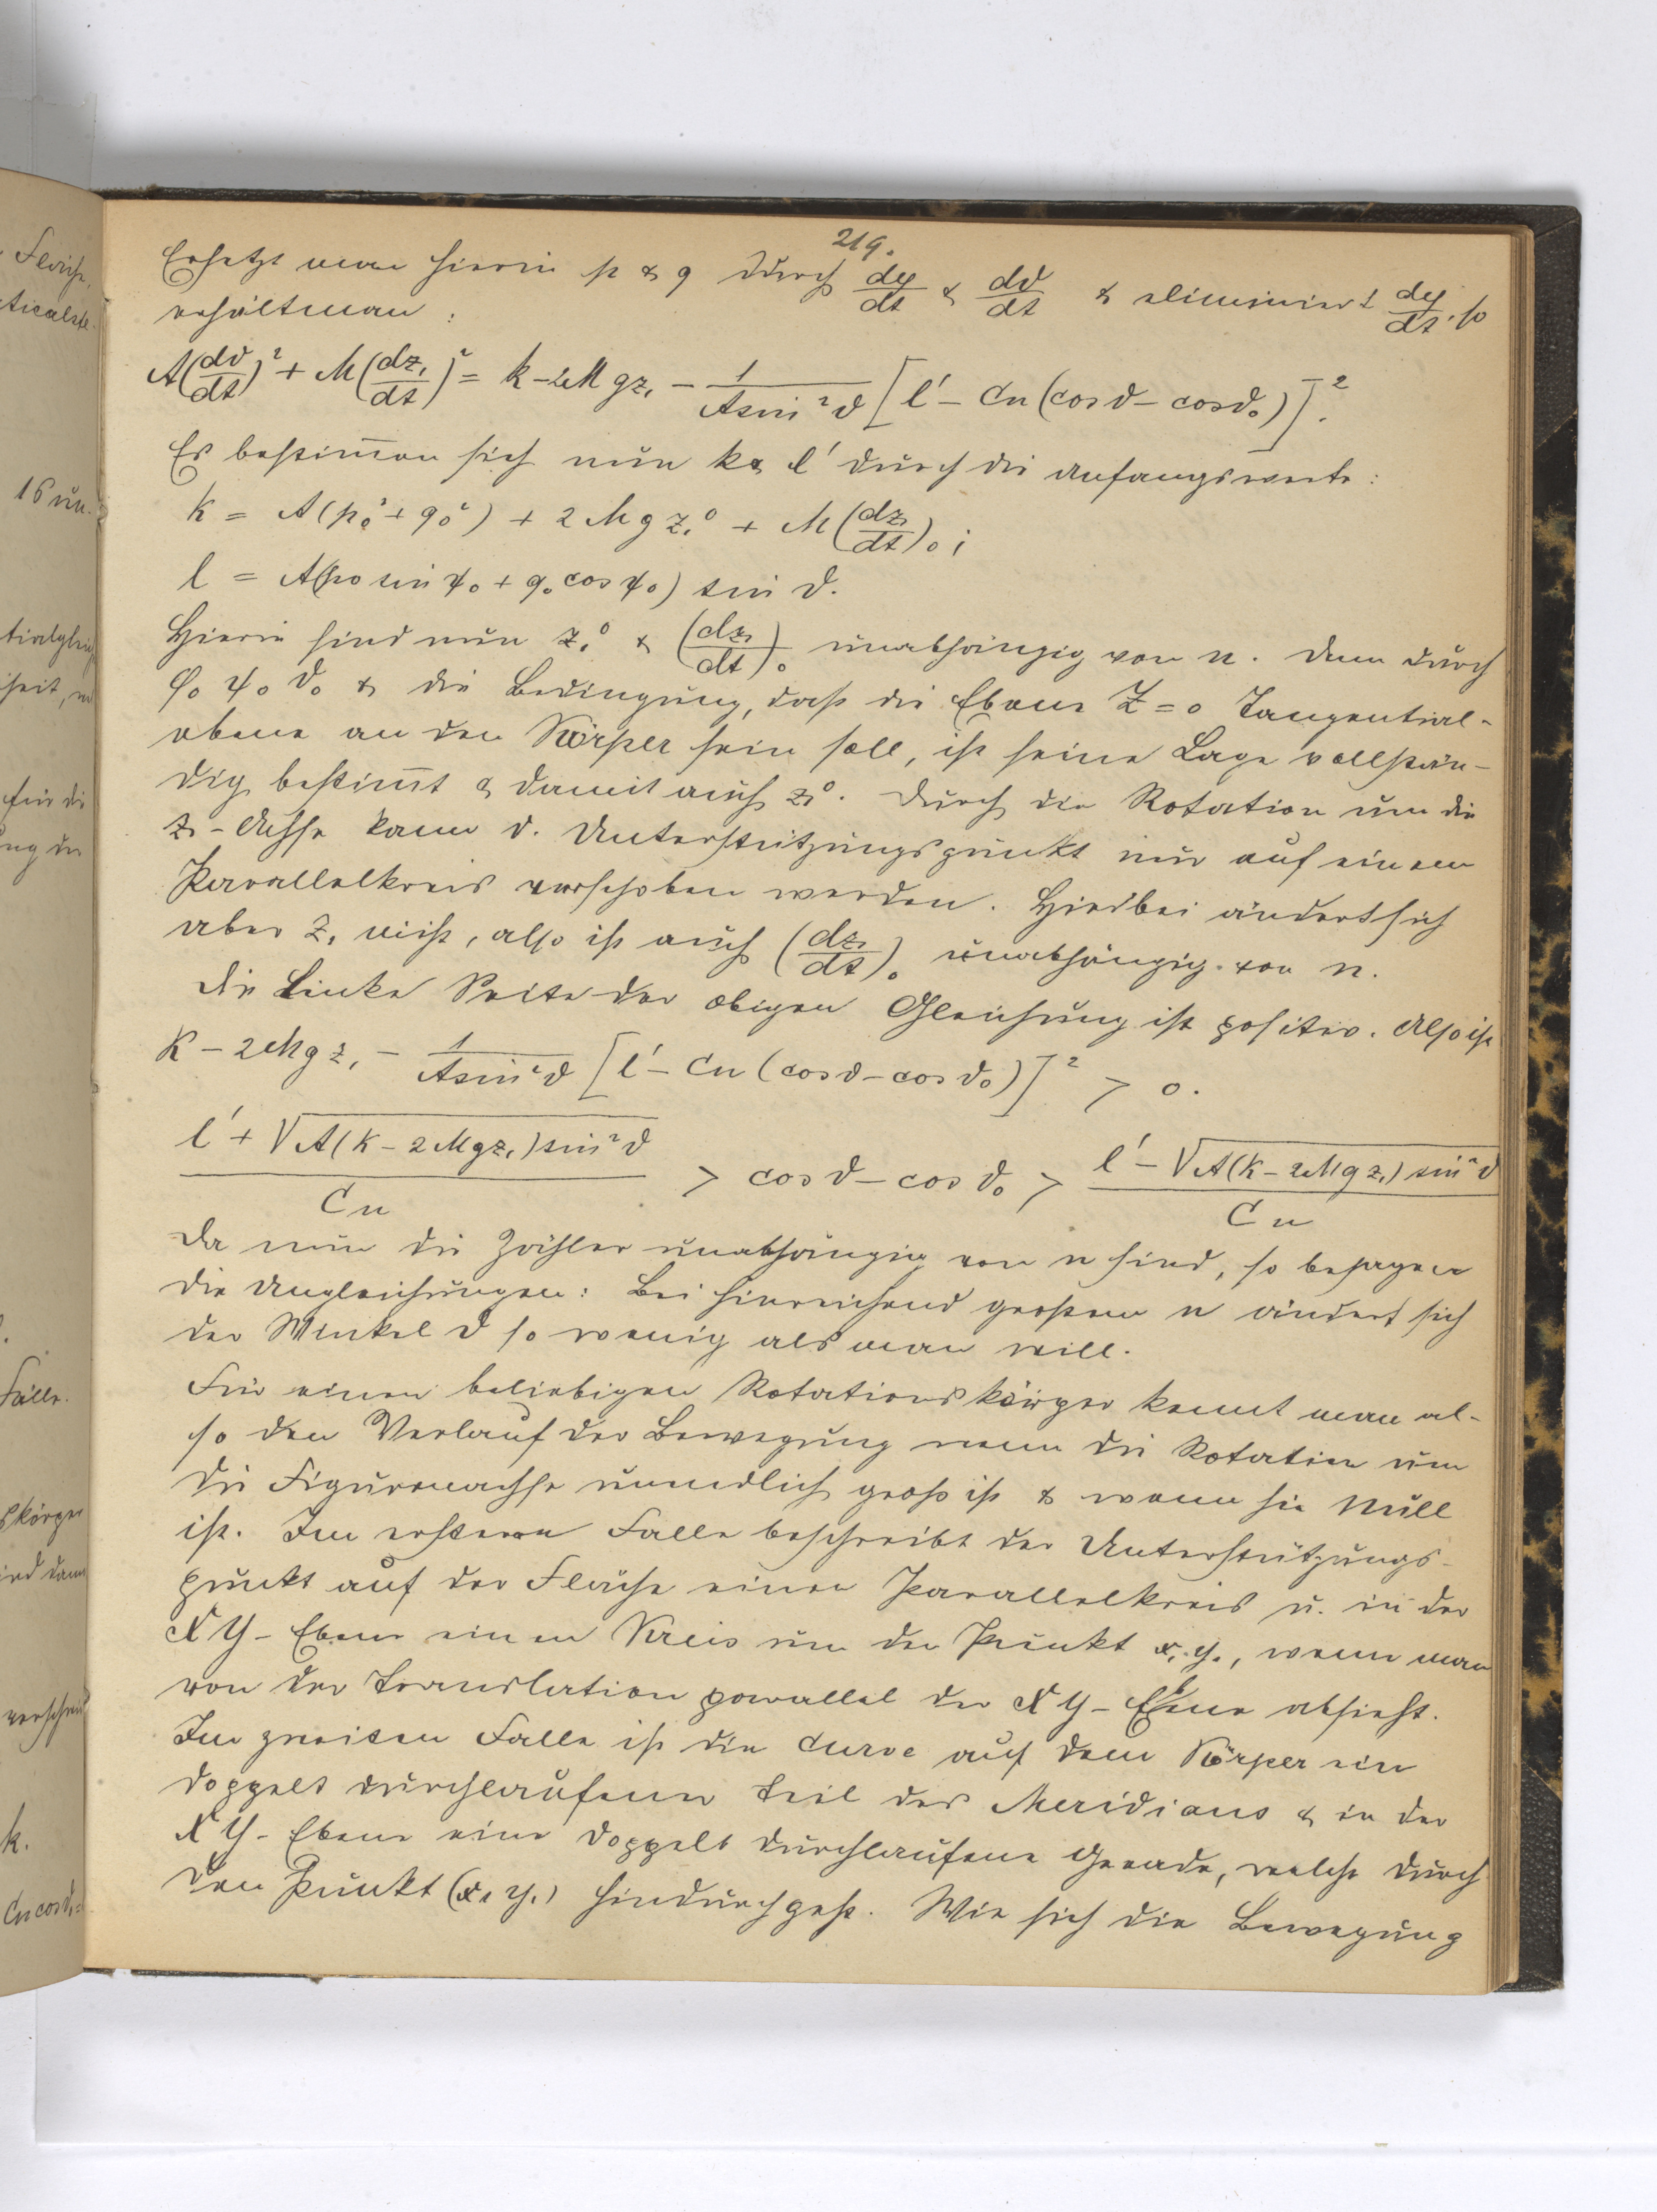 219.
Ersetzt man hierin p & q durch dφ/dt & dϑ/dt & eliminiert dφ/dt, so
erhält man :
A(dϑ/dt)² + M(dz₁/dt)² = k - 2Mgz₁ - 1/(A sin²ϑ) [l' - Cn (cosϑ - cosϑ₀)]².
Es bestim̄en sich nun k & l' durch die Anfangswerte :
k = A(p₀² + q₀²) + 2Mgz₁⁰ + M(dz₁/dt)₀ ;
l = A(p₀ sin ψ₀ + q₀ cos ψ₀) sin ϑ.
Hierin sind nun z₁⁰ & (dz₁/dt)₀ unabhängig von n. Denn durch
φ₀ ψ₀ ϑ₀ & die Bedingung, daß die Ebene Z = 0 Tangential-
ebene an den Körper sein soll, ist seine Lage vollstän-
dig bestim̄t & damit auch z₁⁰. Durch die Rotation um die
z₁-Achse kann d. Unterstützungspunkt nur auf einem
Parallelkreis verschoben werden. Hierbei ändert sich
aber z₁ nicht, also ist auch (dz₁/dt)₀ unabhängig von n.
Die Linke Seite der obigen Gleichung ist positiv. Also ist
k - 2Mgz₁ - 1/(A sin²ϑ) [l' - Cn (cosϑ - cosϑ₀)]² > 0.
(l' + √A(k - 2Mgz₁) sin²ϑ)/Cn > cosϑ - cosϑ₀ > (l' - √A(k - 2Mgz₁) sin²ϑ)/Cn
Da nun die Zähler unabhängig von n sind, so besagen
die Ungleichungen: Bei hinreichend großem n ändert sich
der Winkel ϑ so wenig als man will.
Für einen beliebigen Rotationskörper kennt man al-
so den Verlauf der Bewegung wenn die Rotation um
die Figurenachse unendlich groß ist & wenn sie Null
ist. Im ersteren Falle beschreibt der Unterstützungs-
punkt auf der Fläche einen Parallelkreis u. in der
XY-Ebene einen Kreis um den Punkt x₁ y₁, wenn man
von der Translation parallel der XY-Ebene absieht.
Im zweiten Falle ist die Curve auf dem Körper ein
doppelt durchlaufener Teil des Meridians & in der
XY-Ebene eine doppelt durchlaufene Gerade, welche durch
den Punkt (x₁ y₁) hindurchgeht. Wie sich die Bewegung